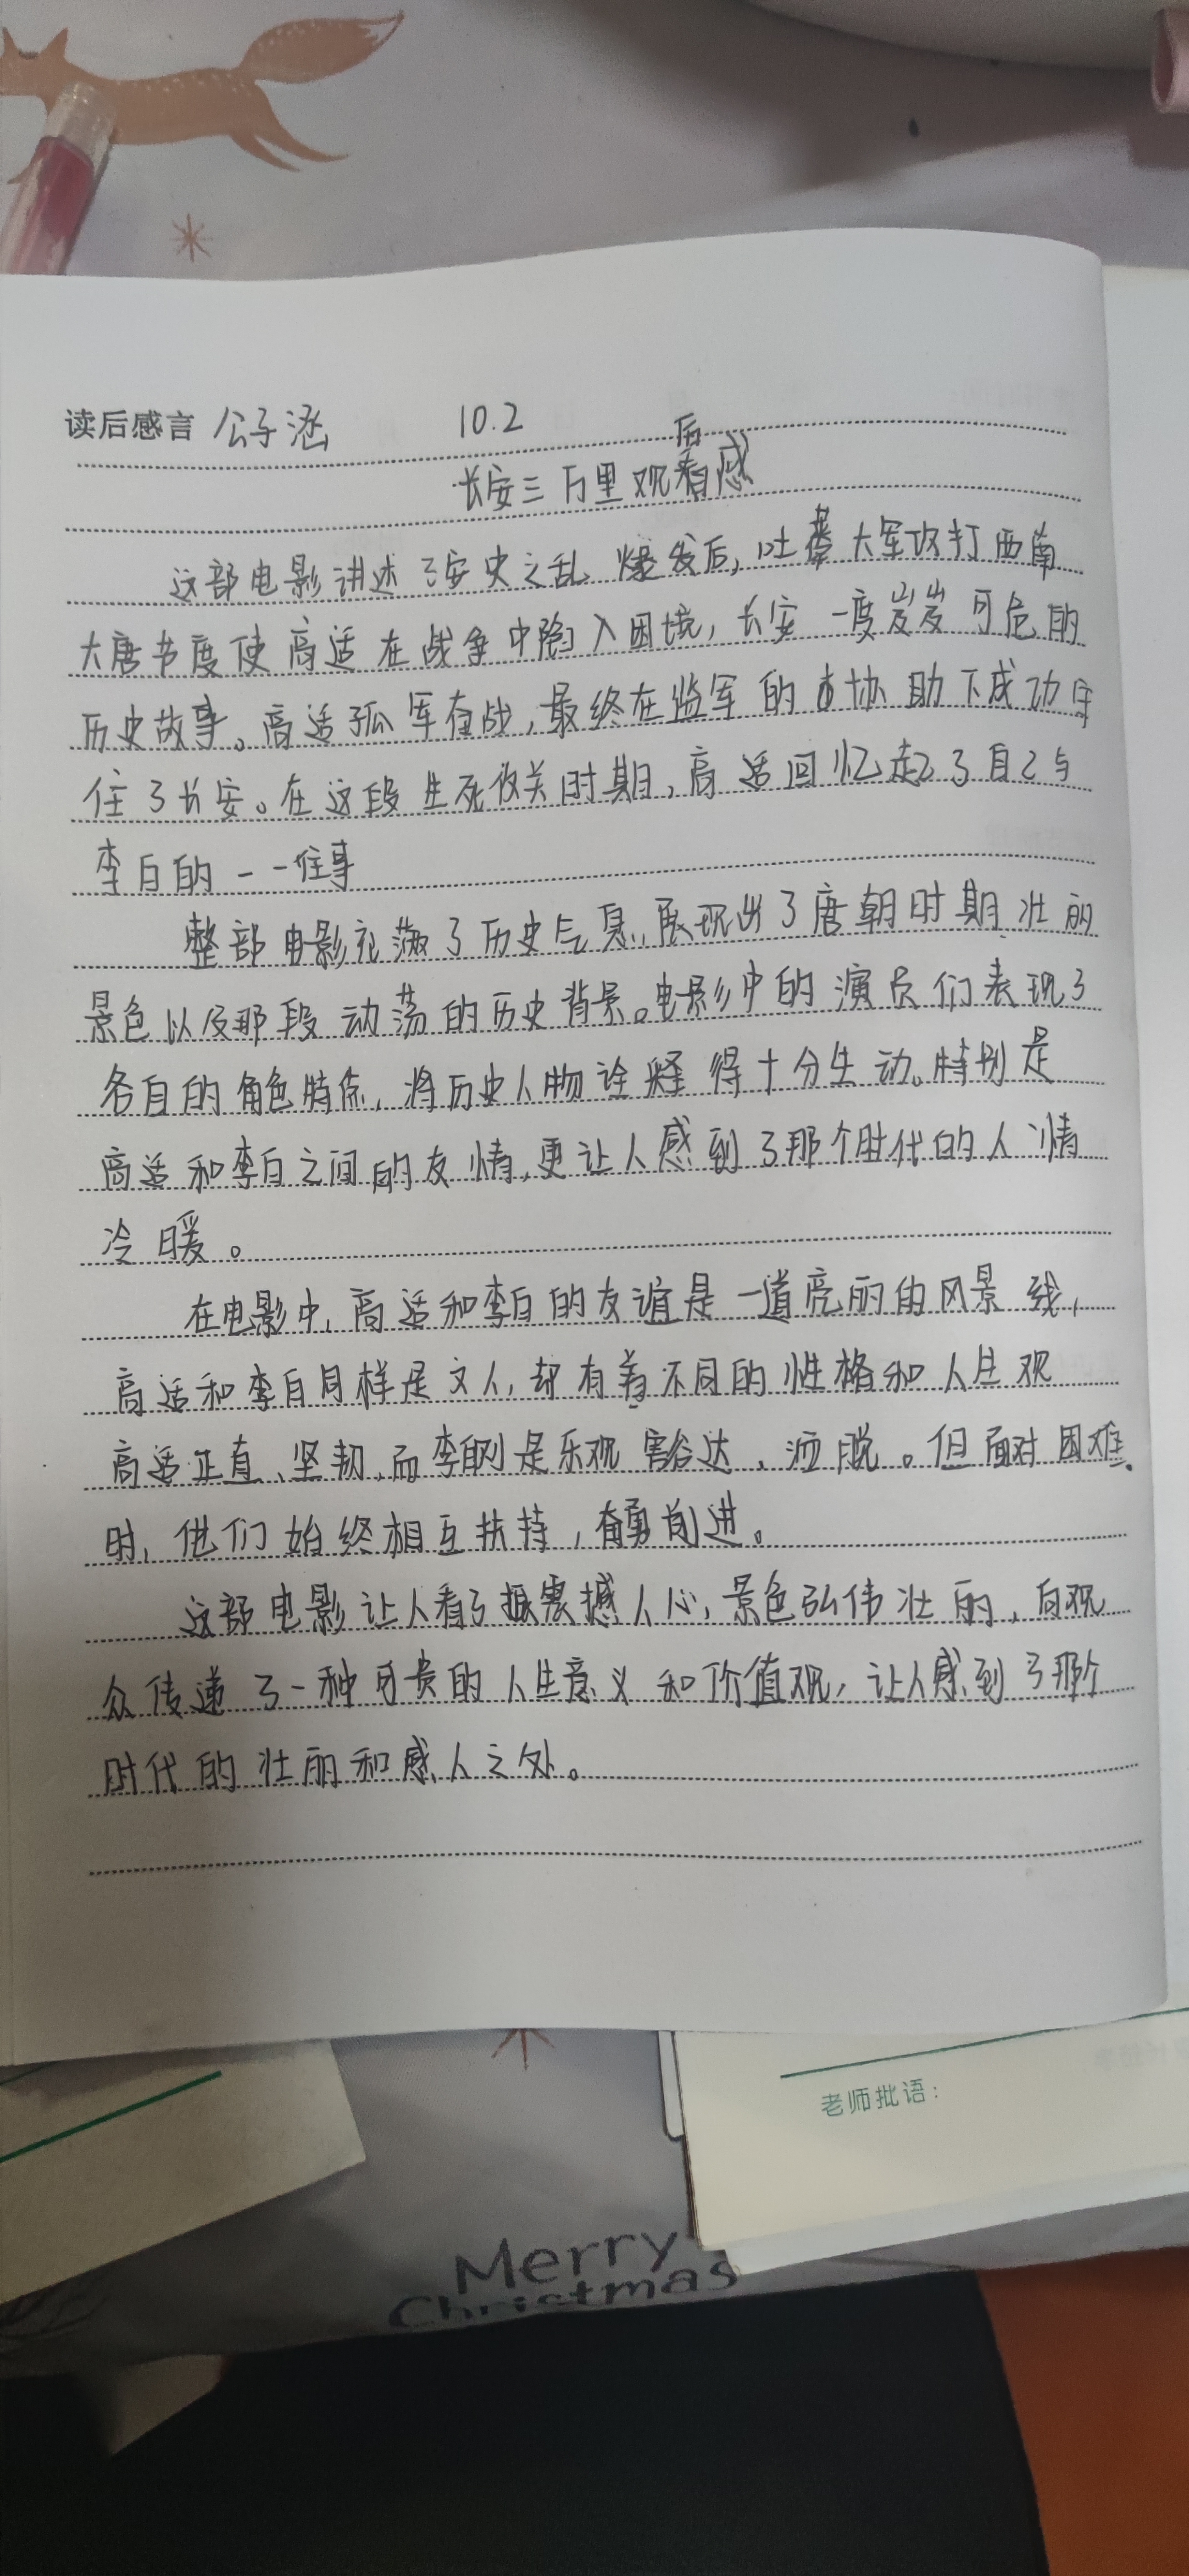 读后感言 公子涵 10.2
长安三万里观看后感
这部电影讲述了安史之乱爆发后,吐蕃大军攻打西南
大唐节度使高适在战争中陷入困境,长安一度岌岌可危的
历史故事。高适孤军奋战,最终在监军的协助下成功守
住了长安。在这段生死攸关时期,高适回忆起了自己与
李白的一一往事
整部电影充满了历史气息,展现出了唐朝时期壮丽
景色以及那段动荡的历史背景。电影中的演员们表现了
各自的角色特点,将历史人物诠释得十分生动。特别是
高适和李白之间的友情,更让人感到了那个时代的人情
冷暖。
在电影中,高适和李白的友谊是一道亮丽的风景线,
高适和李白同样是文人,却有着不同的性格和人生观
高适正直、坚韧,而李白则是乐观豁达、洒脱。但面对困难
时,他们始终相互扶持,奋勇前进。
这部电影让人看了振震撼人心,景色弘伟壮丽,向观
众传递了一种可贵的人生意义和价值观,让人感到了那个
时代的壮丽和感人之处。
老师批语:
Merry
Christmas